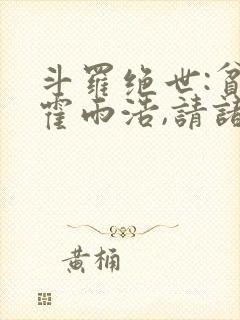 斗羅绝世:貧
霍雨浩,請諸
黄桶